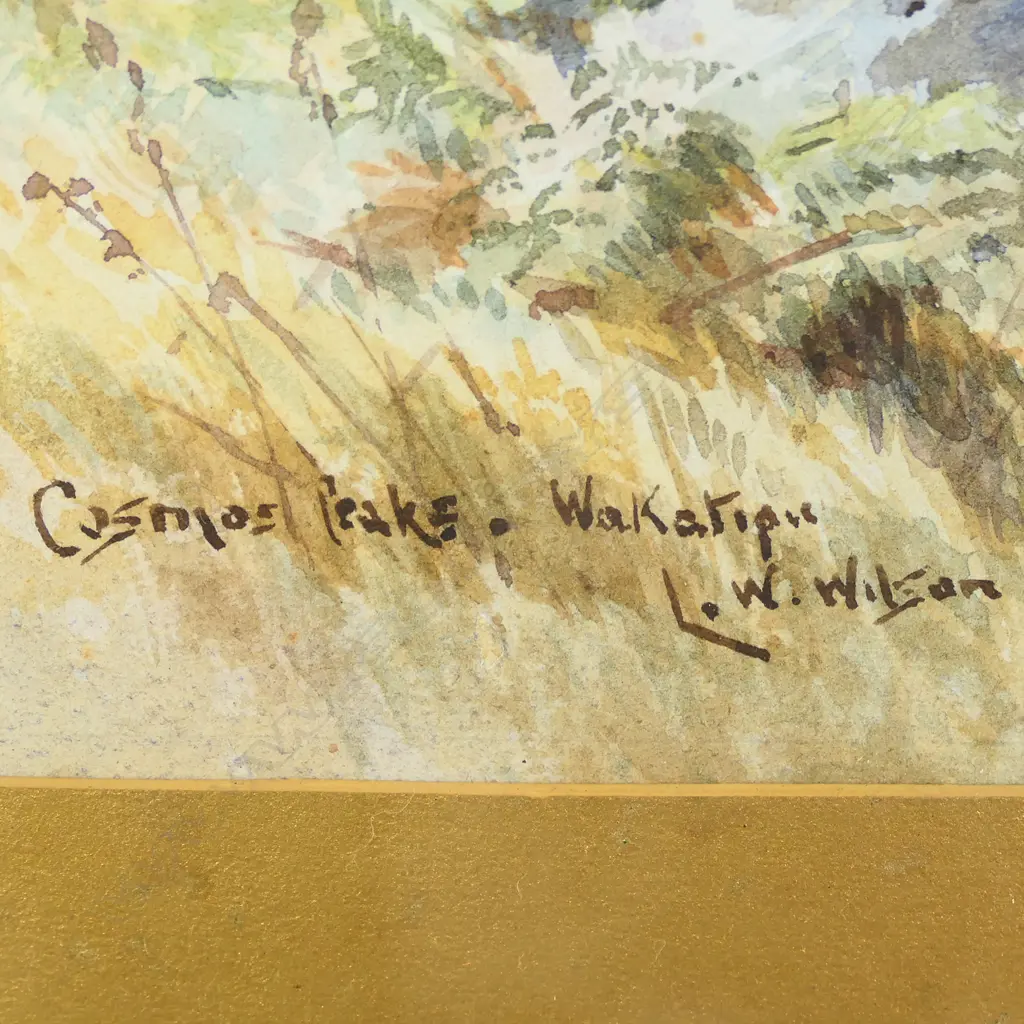 Cosmos Peaks. Wakatipu
L. W. Wilson